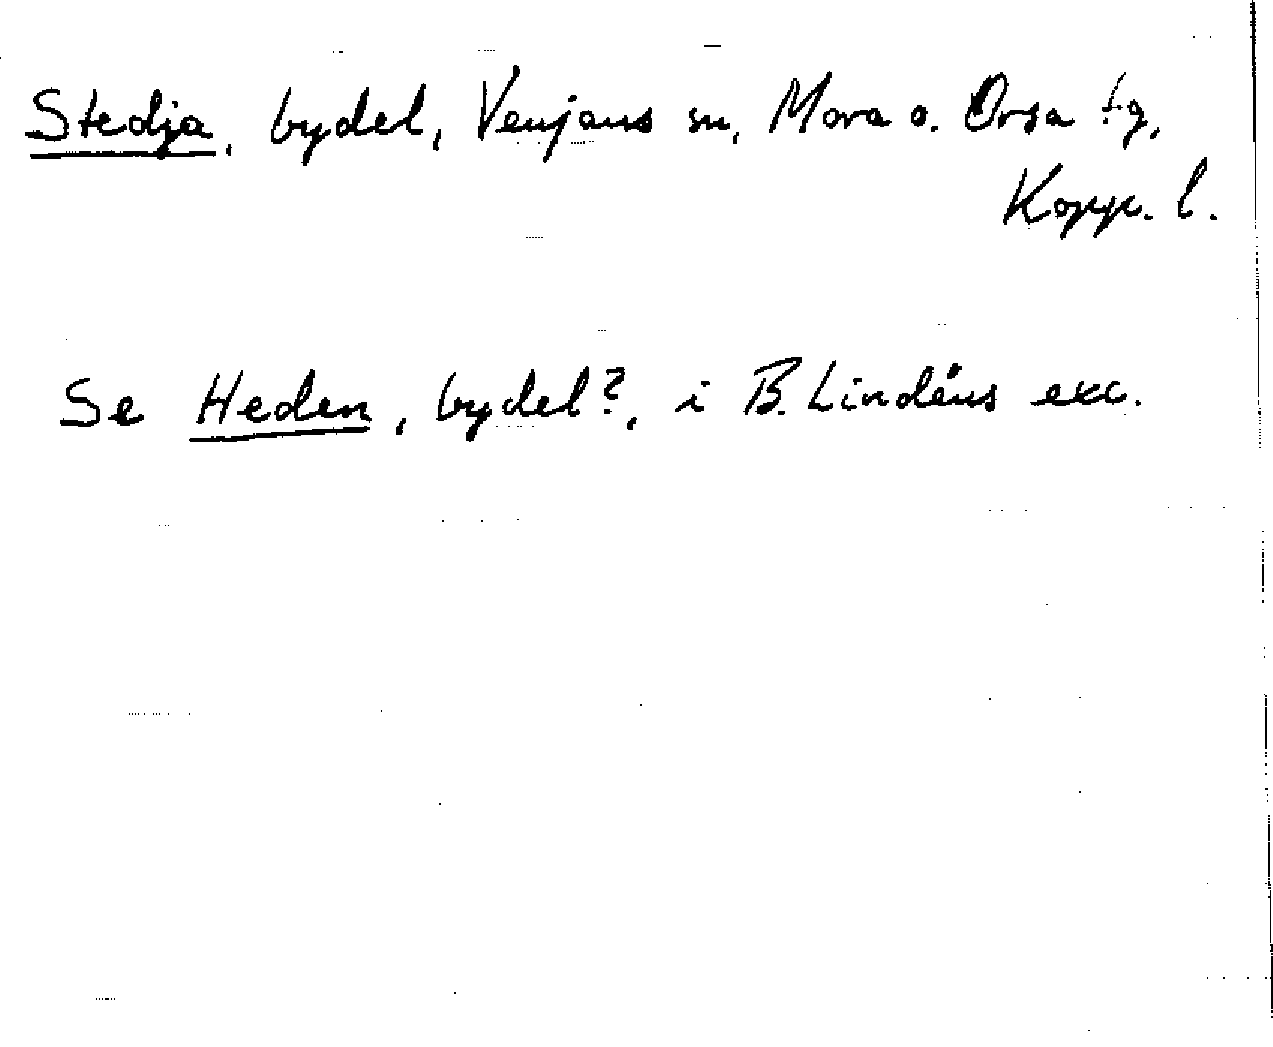 Stedja, bydel, Venjans sn, Mora o. Orsa tg,
Kopp. l.
Se Heden, bydel?, i B. Lindéns exc.